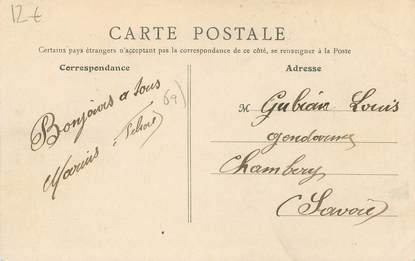 12€
CARTE POSTALE
Certains pays étrangers n'acceptant pas la correspondance de ce côté, se renseigner à la Poste
Correspondance
Adresse
Bonjours a tous
Marius
69)
M Gubian Louis
gendarme
Chambery
(Savoie)